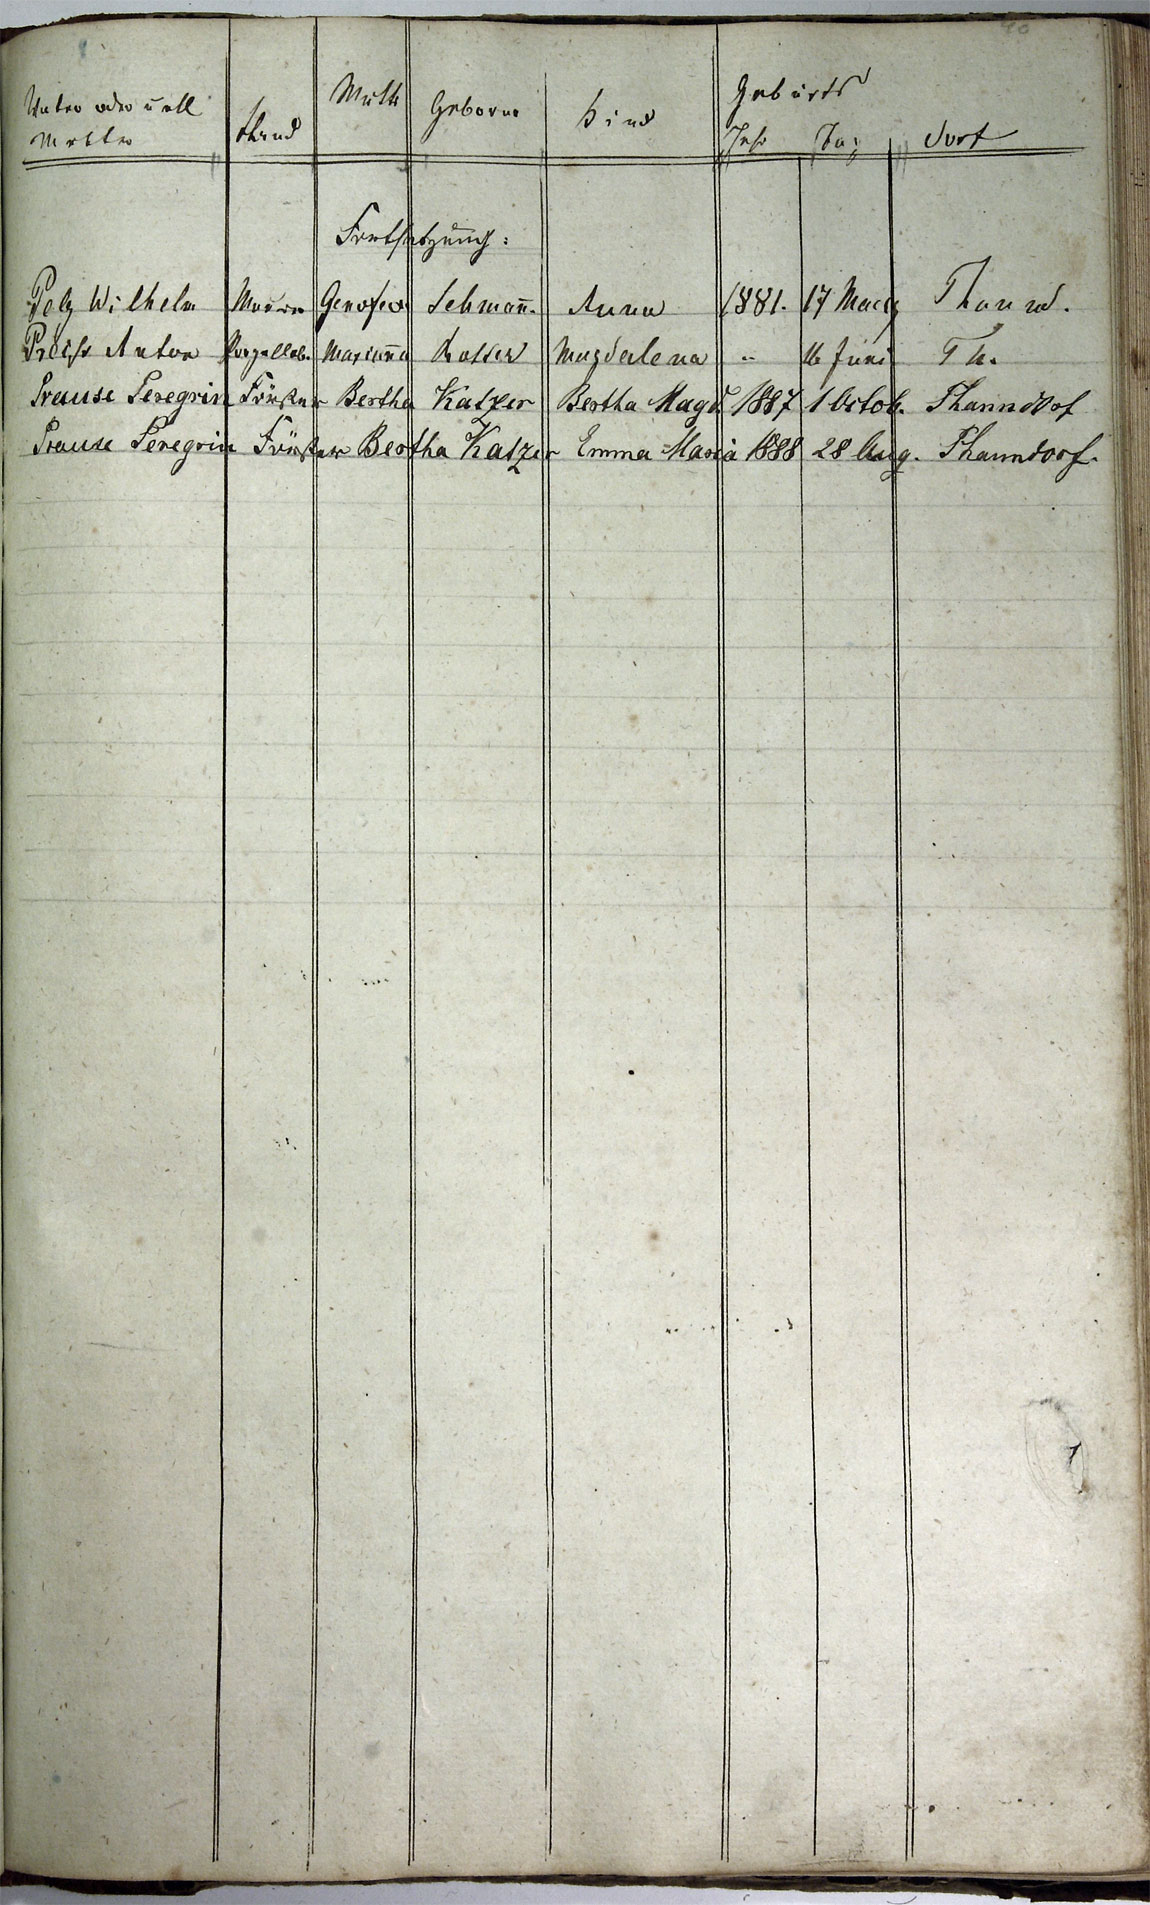 Vater oder unell Mutter Stand Mutter Geborne Kind Geburts
Jahr Tag Dorf
Fortsetzung:
Pelz Wilhelm Maurer Genofeva Lehmann. Anna 1881. 17 Maerz Thannd.
Preiss Anton Marianna Magdalena " 16 Juni Th.
Prause Peregrin Förster Bertha Katzer Bertha Magd. 1887 1 Octob. Thanndorf
Prause Peregrin Förster Bertha Katzer Emma Maria 1888 28 Aug. Thanndorf.